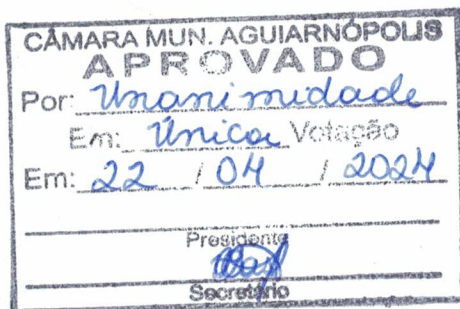 CÂMARA MUN. AGUIARNÓPOLIS
APROVADO
Por: Unanimidade
Em: Única Votação
Em: 22 / 04 / 2024
Presidente
Secretário